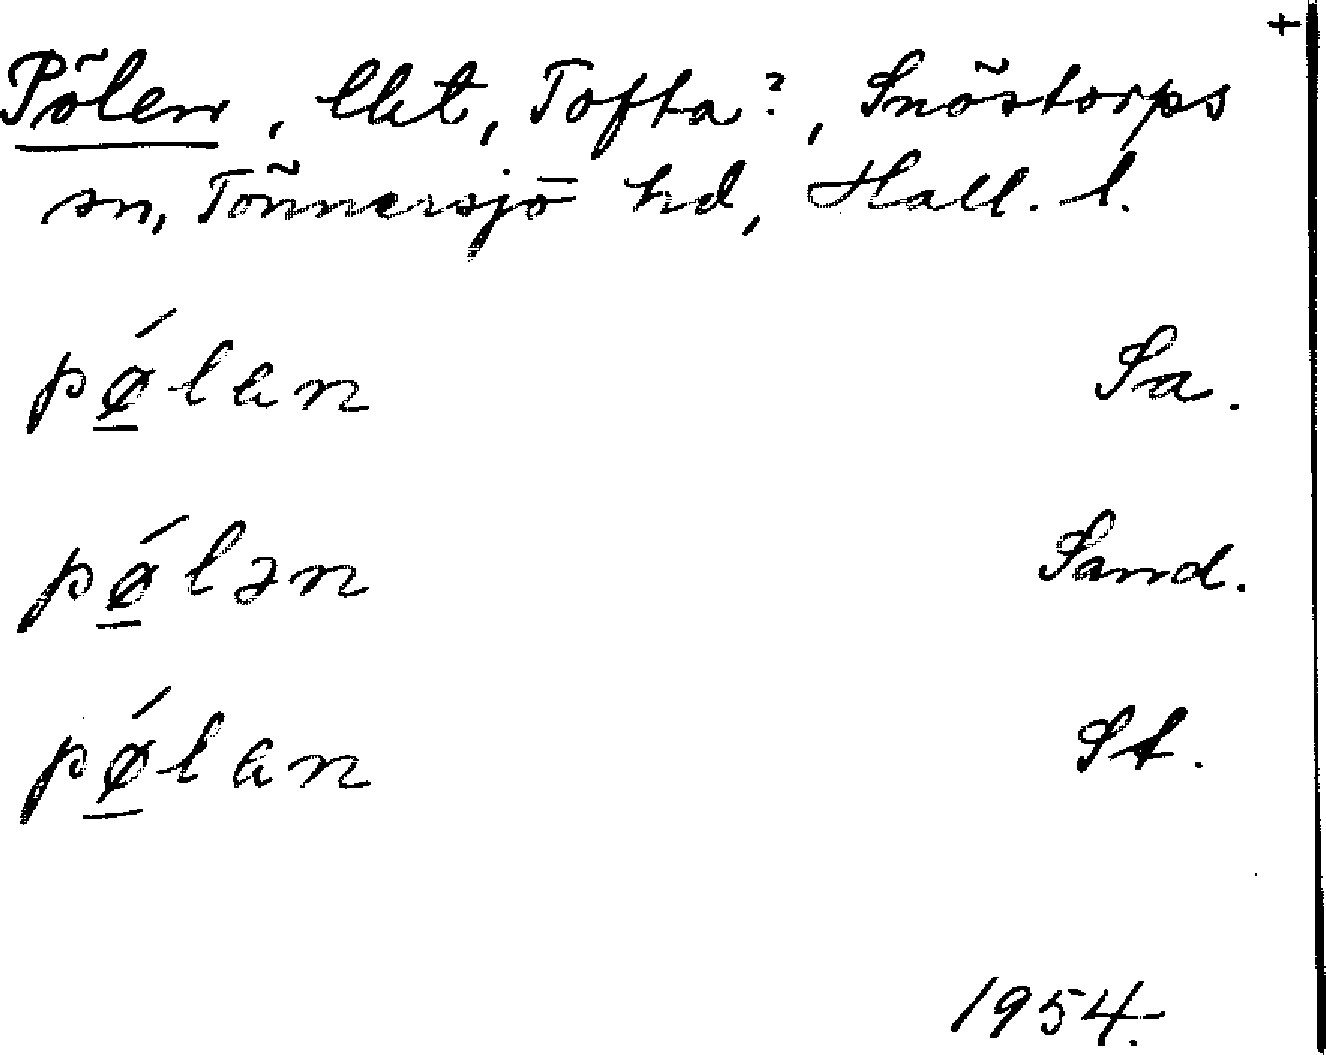 +
Pölen, lht, Tofta?, Snöstorps
sn, Tönnersjö hd, Hall. l.
pǿ̲lan Sa.
pǿ̲lən Sand.
pǿ̲lan St.
1954.